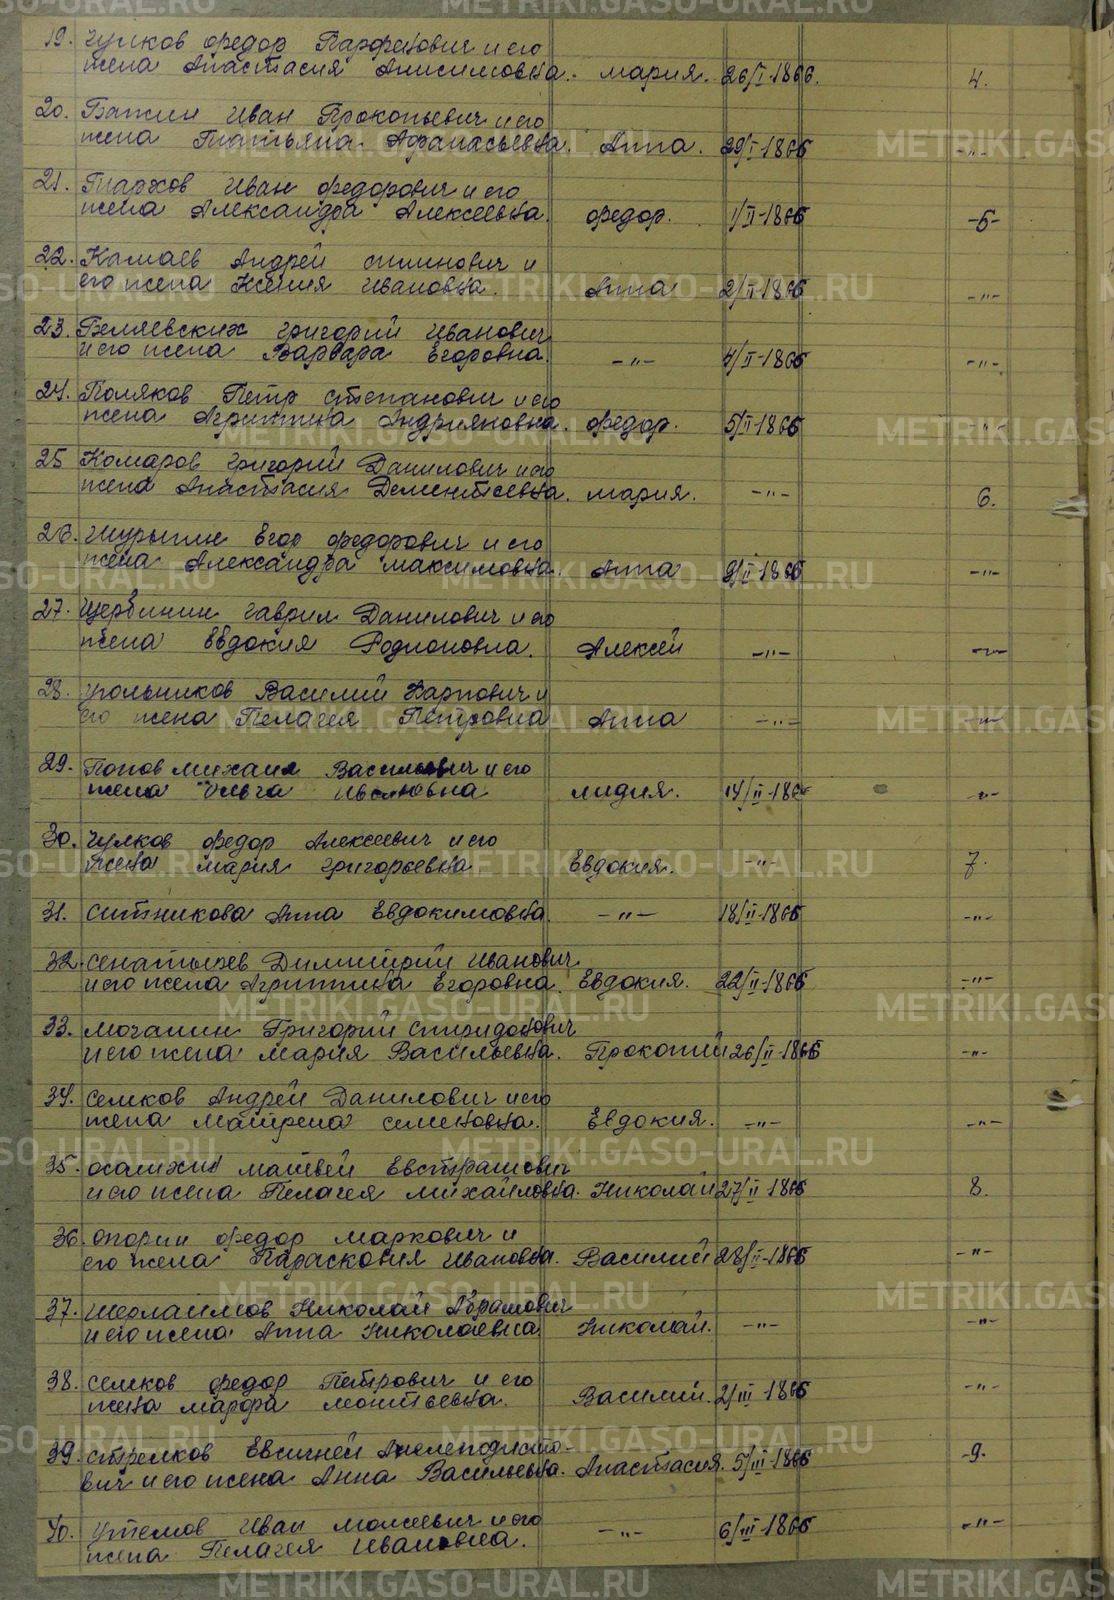 19. Чулков Федор Парфенович и его
жена Анастасия Анисимовна. Мария. 26/I-1866. 4.
20. Бажин Иван Прокопьевич и его
жена Татьяна Афанасьевна. Анна. 29/I-1866 -"-
21. Иван Федорович и его
жена Александра Алексеевна. Федор. 1/II-1866 -5-
22. Камаев Андрей и
его жена Ксения Ивановна. Анна 2/II-1866 -"-
23. Беляевских Григорий Иванович
и его жена Варвара Егоровна. -"- 4/II-1866 -"-
24. Поляков Петр Степанович и его
жена Агриппина Андрияновна. Федор. 5/II-1866 -"-
25 Комаров Григорий Данилович и его
жена Анастасия Дементьевна. Мария. -"- 6.
26. Шурыгин Егор Федорович и его
жена Александра Максимовна. Анна 8/II-1866 -"-
27. Щербинин Гаврил Данилович и его
жена Евдокия Родионовна. Алексей -"- -"-
28. Угольников Василий Карпович и
его жена Пелагея Петровна Анна -"- -"-
29. Попов Михаил Васильевич и его
жена Ольга Ивановна Лидия. 14/II-1866 -"-
30. Чулков Федор Алексеевич и его
жена Мария Григорьевна Евдокия. -"- 7.
31. Ситникова Анна Евдокимовна. -"- 18/II-1866 -"-
32. Сенатырев Димитрий Иванович
и его жена Агриппина Егоровна. Евдокия. 22/II-1866 -"-
33. Мочалин Григорий Спиридонович
и его жена Мария Васильевна. Прокопий 26/II-1866 -"-
34. Семков Андрей Данилович и его
жена Матрена Семеновна. Евдокия. -"- -"-
35. Матвей Евстратович
и его жена Пелагея Михайловна. Николай 27/II-1866 8.
36. Опорин Федор Маркович и
его жена Парасковия Ивановна. Василий 28/II-1866 -"-
37. Николай Абрамович
и его жена Анна Николаевна Николай. -"- -"-
38. Семков Федор Петрович и его
жена Марфа Монтьевна. Василий. 2/III-1866 -"-
39. Стрелков Евгений Анемподисто-
вич и его жена Анна Васильевна. Анастасия. 5/III-1866 -9-
40. Утемов Иван Моисеевич и его
жена Пелагея Ивановна. -"- 6/III-1866 -"-
METRIKI.GASO-URAL.RU